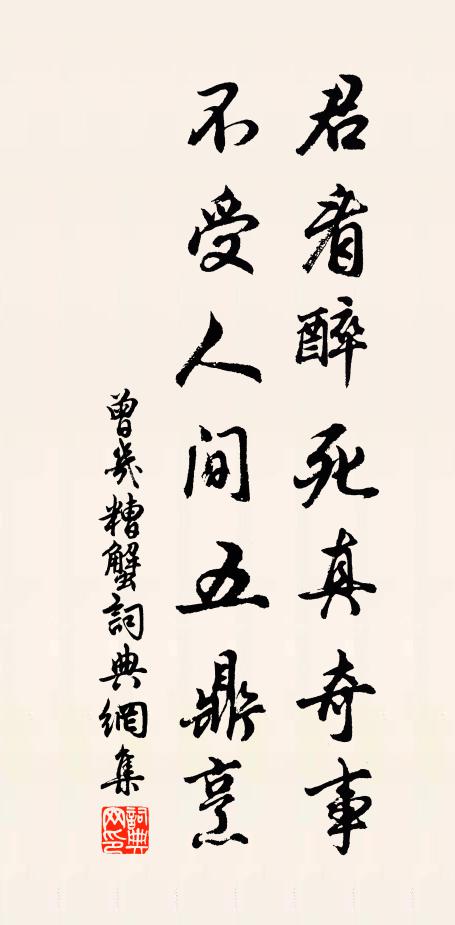 君看醉死真奇事
不受人间五鼎烹
曾幾糟蟹詞典網集
詞典網印